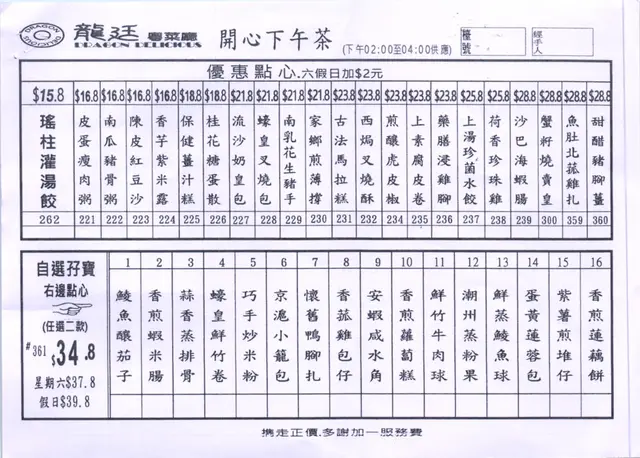 DRAGON DELICIOUS
龍廷 粵菜廳
DRAGON DELICIOUS
開心下午茶
(下午02:00至04:00供應)
檯號
經手人
優惠點心.六假日加$2元
$15.8 $16.8 $16.8 $16.8 $16.8 $18.8 $18.8 $21.8 $21.8 $21.8 $21.8 $23.8 $23.8 $23.8 $23.8 $23.8 $25.8 $25.8 $28.8 $28.8 $28.8 $28.8
瑤柱灌湯餃
皮蛋瘦肉粥
南瓜豬骨粥
陳皮紅豆沙
香芋紫米露
保健薑汁糕
桂花糖蛋散
流沙奶皇包
蠔皇叉燒包
南乳花生豬手
家鄉煎薄撐
古法馬拉糕
西焗叉燒酥
煎釀虎皮椒
上素腐皮卷
藥膳浸雞腳
上湯珍菌水餃
荷香珍珠雞
沙巴海蝦腸
蟹籽燒賣皇
魚肚北菰雞扎
甜醋豬腳薑
262 221 222 223 224 225 226 227 228 229 230 231 232 234 235 236 237 238 239 300 359 360
自選孖寶
右邊點心
(任選二款)
#361 $34.8
星期六$37.8
假日$39.8
1 2 3 4 5 6 7 8 9 10 11 12 13 14 15 16
鯪魚釀茄子
香煎蝦米腸
蒜香蒸排骨
蠔皇鮮竹卷
巧手炒米粉
京滬小籠包
懷舊鴨腳扎
香菰雞包仔
安蝦咸水角
香煎蘿蔔糕
鮮竹牛肉球
潮州蒸粉果
鮮蒸鯪魚球
蛋黃蓮蓉包
紫薯煎堆仔
香煎蓮藕餅
携走正價.多謝加一服務費